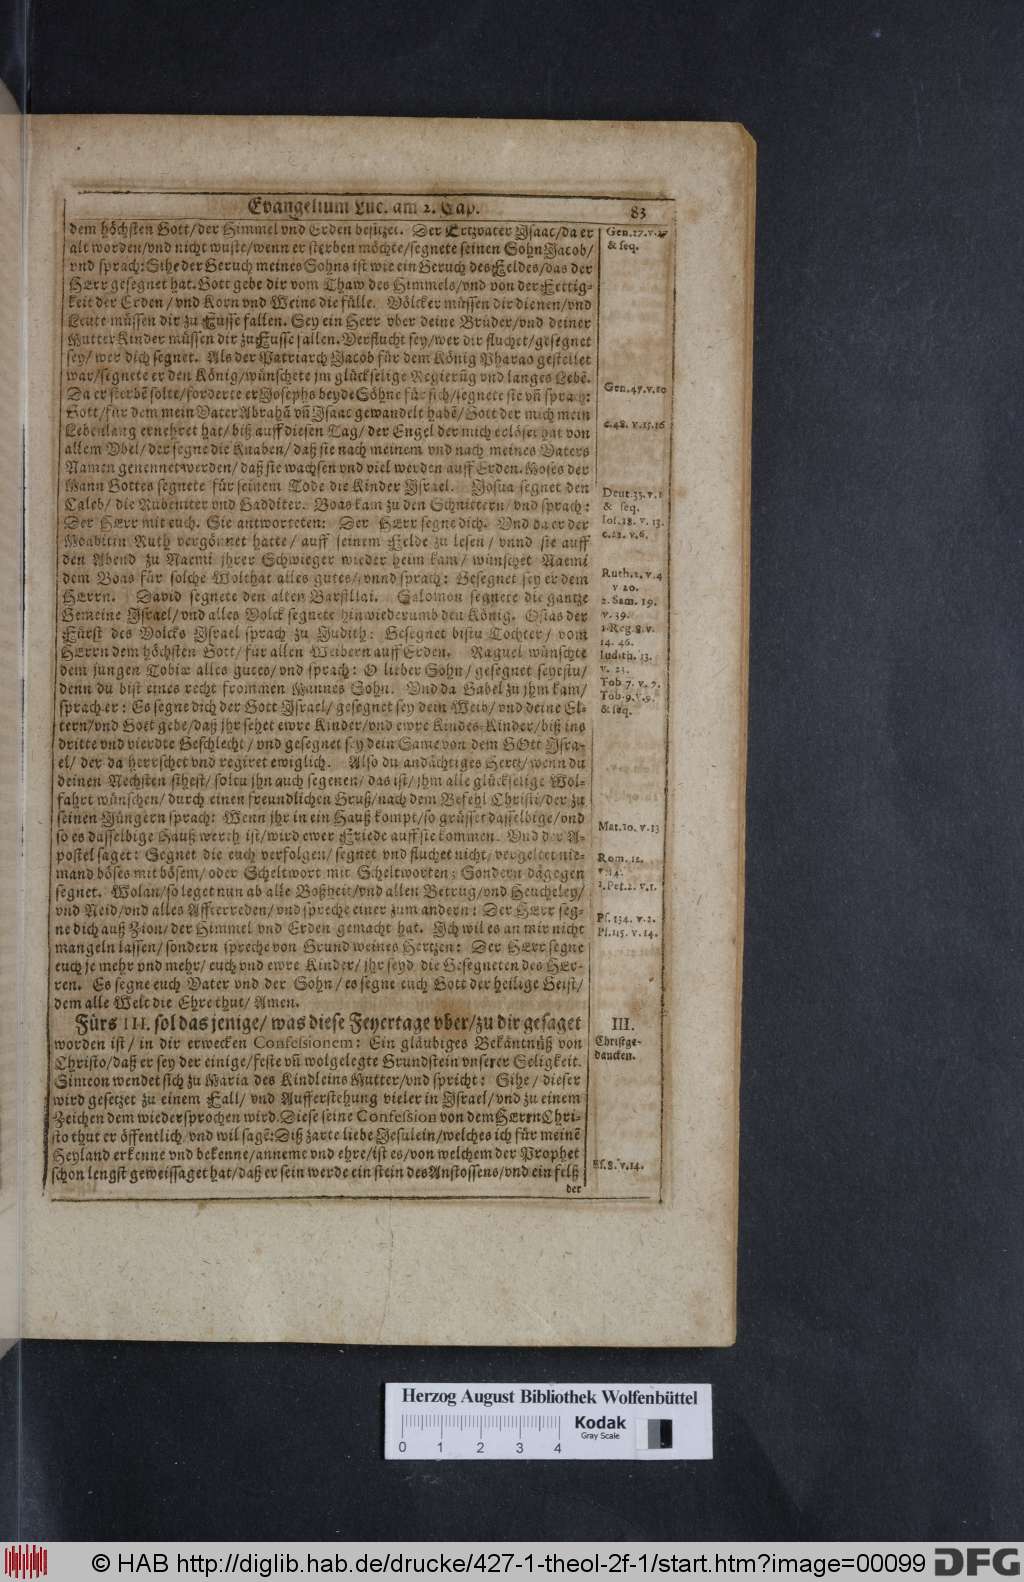 Evangelium Luc. am 2. Cap.
83
dem höchsten Gott/der Himmel vnd Erden besitzet. Der Ertzvater Isaac/da er
alt worden/vnd nicht wuste/wenn er sterben möchte/segnete seinen Sohn Jacob/
vnd sprach: Sihe der Geruch meines Sohns ist wie ein Geruch des Feldes/das der
HErr gesegnet hat. Gott gebe dir vom Thaw des Himmels/vnd von der Fettig-
keit der Erden/vnd Korn vnd Weins die fülle. Völcker müssen dir dienen/vnd
Leute müssen dir zu Fusse fallen. Sey ein Herr vber deine Brüder/vnd deiner
Mutter Kinder müssen dir zu Fusse fallen. Verflucht sey/wer dir fluchet/gesegnet
sey/wer dich segnet. Als der Patriarch Jacob für dem König Pharao gestellet
war/segnete er den König/wünschete jm glückselige Regierũg vnd langes Lebẽ.
Da er sterbẽ solte/forderte er Josephs beyde Söhne für sich/segnete sie vñ sprach:
Gott/für dem mein Vater Abrahã vñ Isaac gewandelt habẽ/Gott der mich mein
Lebenlang ernehret hat/biß auff diesen Tag/der Engel der mich erlöset hat von
allem Vbel/der segne die Knaben/daß sie nach meinem vnd nach meines Vaters
Namen genennet werden/daß sie wachsen vnd viel werden auff Erden. Moses der
Mann Gottes segnete für seinem Tode die Kinder Israel. Josua segnet den
Caleb/die Rubeniter vnd Gadditer. Boas kam zu den Schnittern/vnd sprach:
Der HErr mit euch. Sie antworteten: Der HErr segne dich. Vnd da er der
Moabitin Ruth vergönnet hatte/auff seinem Felde zu lesen/vnnd sie auff
den Abend zu Naemi jhrer Schwieger wieder heim kam/wünschet Naemi
dem Boas für solche Wolthat alles gutes/vnnd sprach: Gesegnet sey er dem
HErrn. David segnete den alten Barsillai. Salomon segnete die gantze
Gemeine Israel/vnd alles Volck segnete hinwiederumb den König. Osias der
Fürst des Volcks Israel sprach zu Judith: Gesegnet bistu Tochter/vom
HErrn dem höchsten Gott/für allen Weibern auff Erden. Raguel wünschte
dem jungen Tobiæ alles gutes/vnd sprach: O lieber Sohn/gesegnet seyestu/
denn du bist eines recht frommen Mannes Sohn. Vnd da Gabel zu jhm kam/
sprach er: Es segne dich der Gott Israel/gesegnet sey dein Weib/vnd deine El-
tern/vnd Gott gebe/daß jhr sehet ewre Kinder/vnd ewre Kindes-Kinder/biß ins
dritte vnd vierdte Geschlecht/vnd gesegnet sey dein Same von dem GOtt Isra-
el/der da herrschet vnd regiret ewiglich. Also du andächtiges Hertz/wenn du
deinen Nechsten sihest/soltu jhn auch segenen/das ist/jhm alle glückselige Wol-
fahrt wünschen/durch einen freundlichen Gruß/nach dem Befehl Christi/der zu
seinen Jüngern sprach: Wenn jhr in ein Hauß kompt/so grüsset dasselbige/vnd
so es dasselbige Hauß werth ist/wird ewer Friede auff sie kommen. Vnd der A-
postel saget: Segnet die euch verfolgen/segnet vnd fluchet nicht/vergeltet nie-
mand böses mit bösem/oder Scheltwort mit Scheltworten; Sondern dagegen
segnet. Wolan/so leget nun ab alle Boßheit/vnd allen Betrug/vnd Heucheley/
vnd Neid/vnd alles Affterreden/vnd spreche einer zum andern: Der HErr seg-
ne dich auß Zion/der Himmel vnd Erden gemacht hat. Ich wil es an mir nicht
mangeln lassen/sondern spreche von Grund meines Hertzen: Der HErr segne
euch je mehr vnd mehr/euch vnd ewre Kinder/jhr seyd die Gesegneten des HEr-
ren. Es segne euch Vater vnd der Sohn/es segne euch Gott der heilige Geist/
dem alle Welt die Ehre thut/Amen.
Fürs III. sol das jenige/was diese Feyertage vber/zu dir gesaget
worden ist/in dir erwecken Confessionem: Ein gläubiges Bekäntnüß von
Christo/daß er sey der einige/feste vñ wolgelegte Grundstein vnserer Seligkeit.
Simeon wendet sich zu Maria des Kindleins Mutter/vnd spricht: Sihe/dieser
wird gesetzet zu einem Fall/vnd Aufferstehung vieler in Israel/vnd zu einem
Zeichen dem wiedersprochen wird. Diese seine Confession von dem HErrn Chri-
sto thut er öffentlich/vnd wil sagẽ: Diß zarte liebe Jesulein/welches ich für meinẽ
Heyland erkenne vnd bekenne/annemme vnd ehre/ist es/von welchem der Prophet
schon lengst geweissaget hat/daß er sein werde ein stein des Anstossens/vnd ein felß
der
Gen. 27. v. 27
& seq.
Gen. 47. v. 10
c. 48. v. 15. 16
Deut. 33. v. 1
& seq.
Ios. 18. v. 13.
c. 22. v. 6.
Ruth. 2. v. 4
v 20.
2. Sam. 19.
v. 39.
1. Reg. 8. v.
14. 46.
Iudith. 13.
v. 23.
Tob. 7. v. 7.
Tob. 9. v. 9.
& seq.
Mat. 10. v. 13
Rom. 12.
v. 14.
1. Pet. 2. v. 1.
Ps. 134. v. 2.
Ps. 115. v. 14.
III.
Christge-
dancken.
Es. 8. v. 14.
Herzog August Bibliothek Wolfenbüttel
Kodak
Gray Scale
0 1 2 3 4
© HAB http://diglib.hab.de/drucke/427-1-theol-2f-1/start.htm?image=00099
DFG